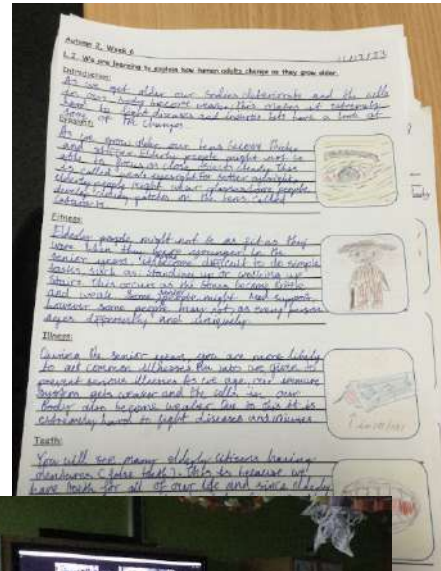 Autumn 2, Week 6
L.I. We are learning to explain how human adults change as they grow older.
Introduction:
As we get older our bodies deteriorate and the cells
in our body become weaker. this makes it extremely
hard to fight diseases and illnesses lets have a look at
some of the changes.
Eyesight:
As we grow older our lens become thicker
and stiffer. Elderly people might not be
able to focus on close objects clearly. This
is called weak eyesight for better
elderly people might wear glasses some people
develop cloudy patches on the lens called
cataracts.
Fitness:
Elderly people might not be as fit as they
were when they were younger. In the
senior years difficult to do simple
tasks such as: standing up or walking up
stairs. This occurs as the bones become brittle
and weak. Some people might need support,
however some people may not, as every person
ages differently and uniquely.
Illness:
During the senior years, you are more likely
to get common illnesses. are given to
prevent serious illnesses. As we age, our immune
system gets weaker and the cells in our
body also become weaker. Due to this it is
extremely hard to fight diseases and illnesses.
Teeth:
You will see many elderly citizens having
dentures (false teeth). This is because we
have teeth for all of our life and since elderly